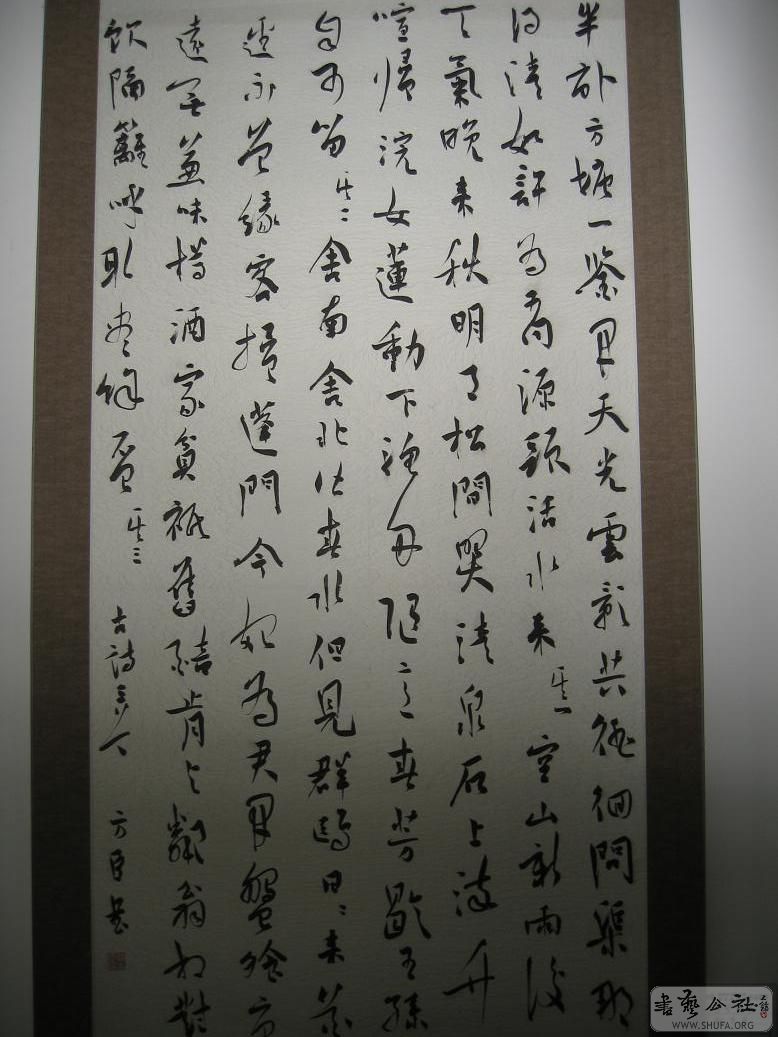 半畝方塘一鑒開天光雲影共徘徊問渠那
得清如許為有源頭活水来其一空山新雨後
天氣晚来秋明月松間照清泉石上流竹
喧歸浣女蓮動下漁舟隨意春芳歇王孫
自可留其二舍南舍北皆春水但見群鷗日々来花
逕不曾緣客掃蓬門今始為君開盤飧市
遠無兼味樽酒家貧祇舊醅肯与鄰翁相對
飲隔籬呼取盡餘杯其三 古詩 方臣書
書藝公社
WWW.SHUFA.ORG